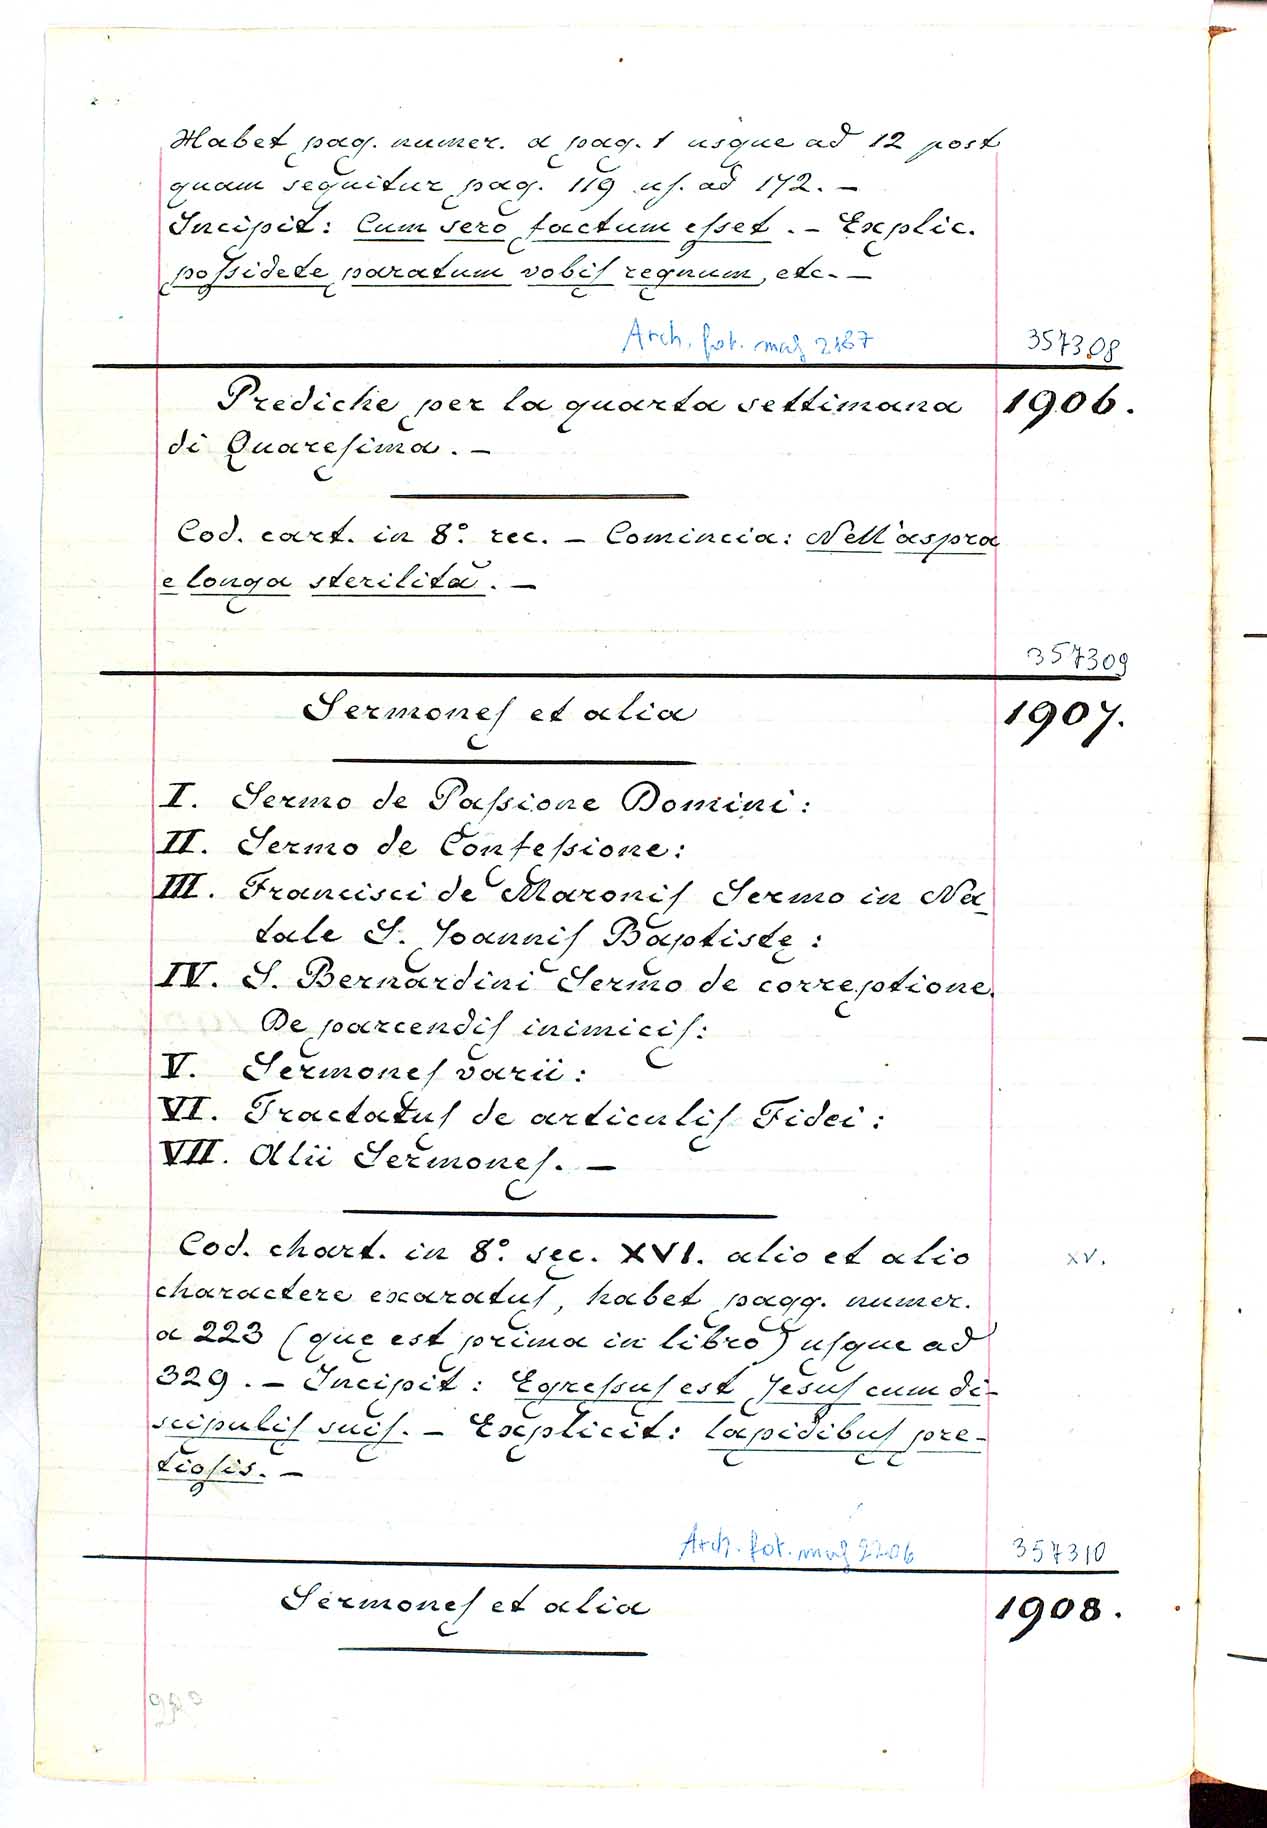 Habet pag. numer. a pag. 1 usque ad 12 post
quam sequitur pag. 119 uſ. ad 172. –
Incipit: Cum sero factum eſset. – Explic.
poſsidete paratum vobiſ regnum, etc. –
Arch. fot. maſ 2187
357308
Prediche per la quarta settimana
1906.
di Quareſima. –
Cod. cart. in 8.° rec. – Comincia: Nell'aspra
e longa sterilità. –
357309
Sermoneſ et alia
1907.
I. Sermo de Paſsione Domini:
II. Sermo de Confeſsione:
III. Francisci de Maroniſ Sermo in Na-
tale S. Joanniſ Baptistę:
IV. S. Bernardini Sermo de correptione.
De parcendiſ inimiciſ:
V. Sermoneſ varii:
VI. Tractatuſ de articuliſ Fidei:
VII. Alii Sermoneſ. –
Cod. chart. in 8.° sec. XVI. alio et alio
XV.
charactere exaratuſ, habet pagg. numer.
a 223 (quę est prima in libro) uſque ad
329. – Incipit: Egreſsuſ est Jesuſ cum di-
scipuliſ suiſ. – Explicit: lapidibuſ pre-
tioſis. –
Arch. fot. maſ 2206
357310
Sermoneſ et alia
1908.